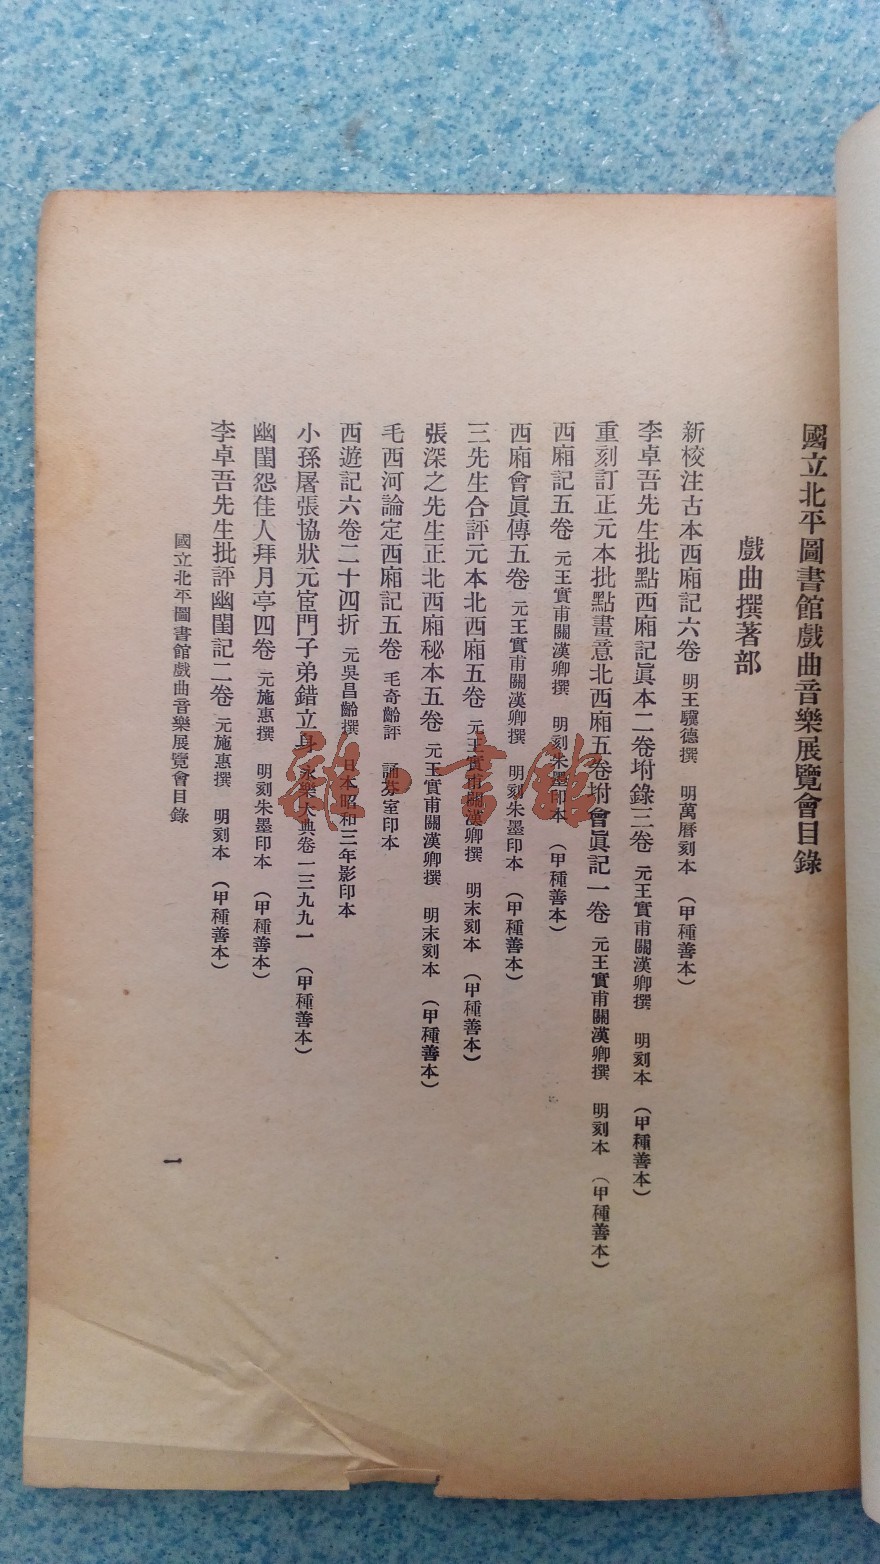 國立北平圖書館戲曲音樂展覽會目錄
戲曲撰著部
新校注古本西廂記六卷 明王驥德撰 明萬曆刻本 (甲種善本)
李卓吾先生批點西廂記眞本二卷坿錄三卷 元王實甫關漢卿撰 明刻本 (甲種善本)
重刻訂正元本批點畫意北西廂五卷坿會眞記一卷 元王實甫關漢卿撰 明刻本 (甲種善本)
西廂記五卷 元王實甫關漢卿撰 明刻朱墨印本 (甲種善本)
西廂會眞傳五卷 元王實甫關漢卿撰 明刻朱墨印本 (甲種善本)
三先生合評元本北西廂五卷 元王實甫關漢卿撰 明末刻本 (甲種善本)
張深之先生正北西廂秘本五卷 元王實甫關漢卿撰 明末刻本 (甲種善本)
毛西河論定西廂記五卷 毛奇齡評 誦芬室印本
西遊記六卷二十四折 元吳昌齡撰 日本昭和三年影印本
小孫屠張協狀元宦門子弟錯立身 永樂大典卷一三九九一 (甲種善本)
幽閨怨佳人拜月亭四卷 元施惠撰 明刻朱墨印本 (甲種善本)
李卓吾先生批評幽閨記二卷 元施惠撰 明刻本 (甲種善本)
國立北平圖書館戲曲音樂展覽會目錄
一
雜·書館